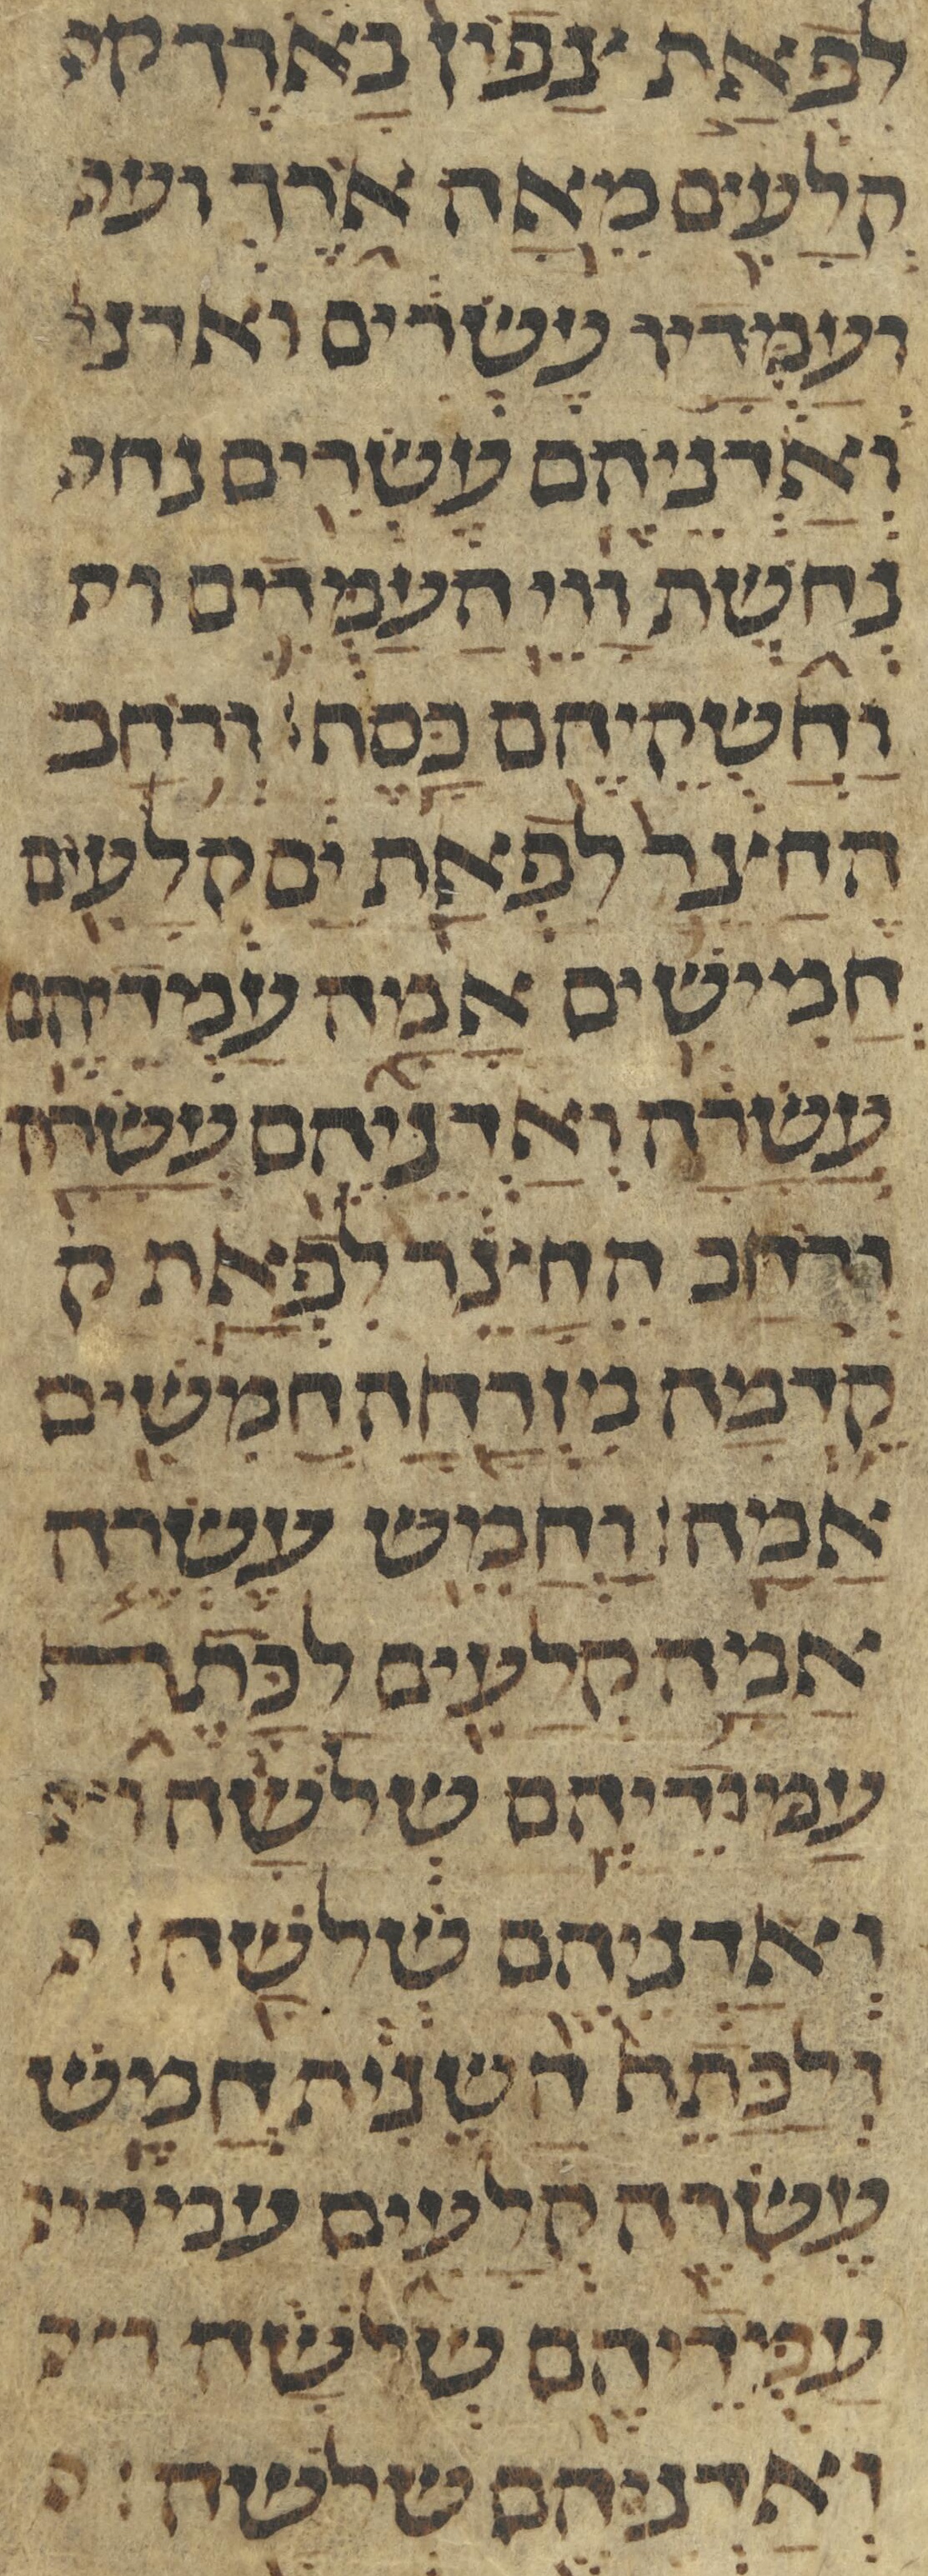 לפאת צפון בארך ק
קלעים מאה ארך וע
ועמדיו עשרים ואדנ
ואדניהם עשרים נח
נחשת ווי העמדים וח
וחשקיהם כסף׃ ורחב
החצר לפאת ים קלעים
חמישים אמה עמדיהם
עשרה ואדניהם עשרה
ורחב החצר לפאת ק
קדמה מזרחה חמשים
אמה׃ וחמש עשרה
אמה קלעים לכתף
עמודיהם שלשה וא
ואדניהם שלשה׃
ולכתף השנית חמש
עשרה קלעים עמדי
עמדיהם שלשה וא
ואדניהם שלשה׃